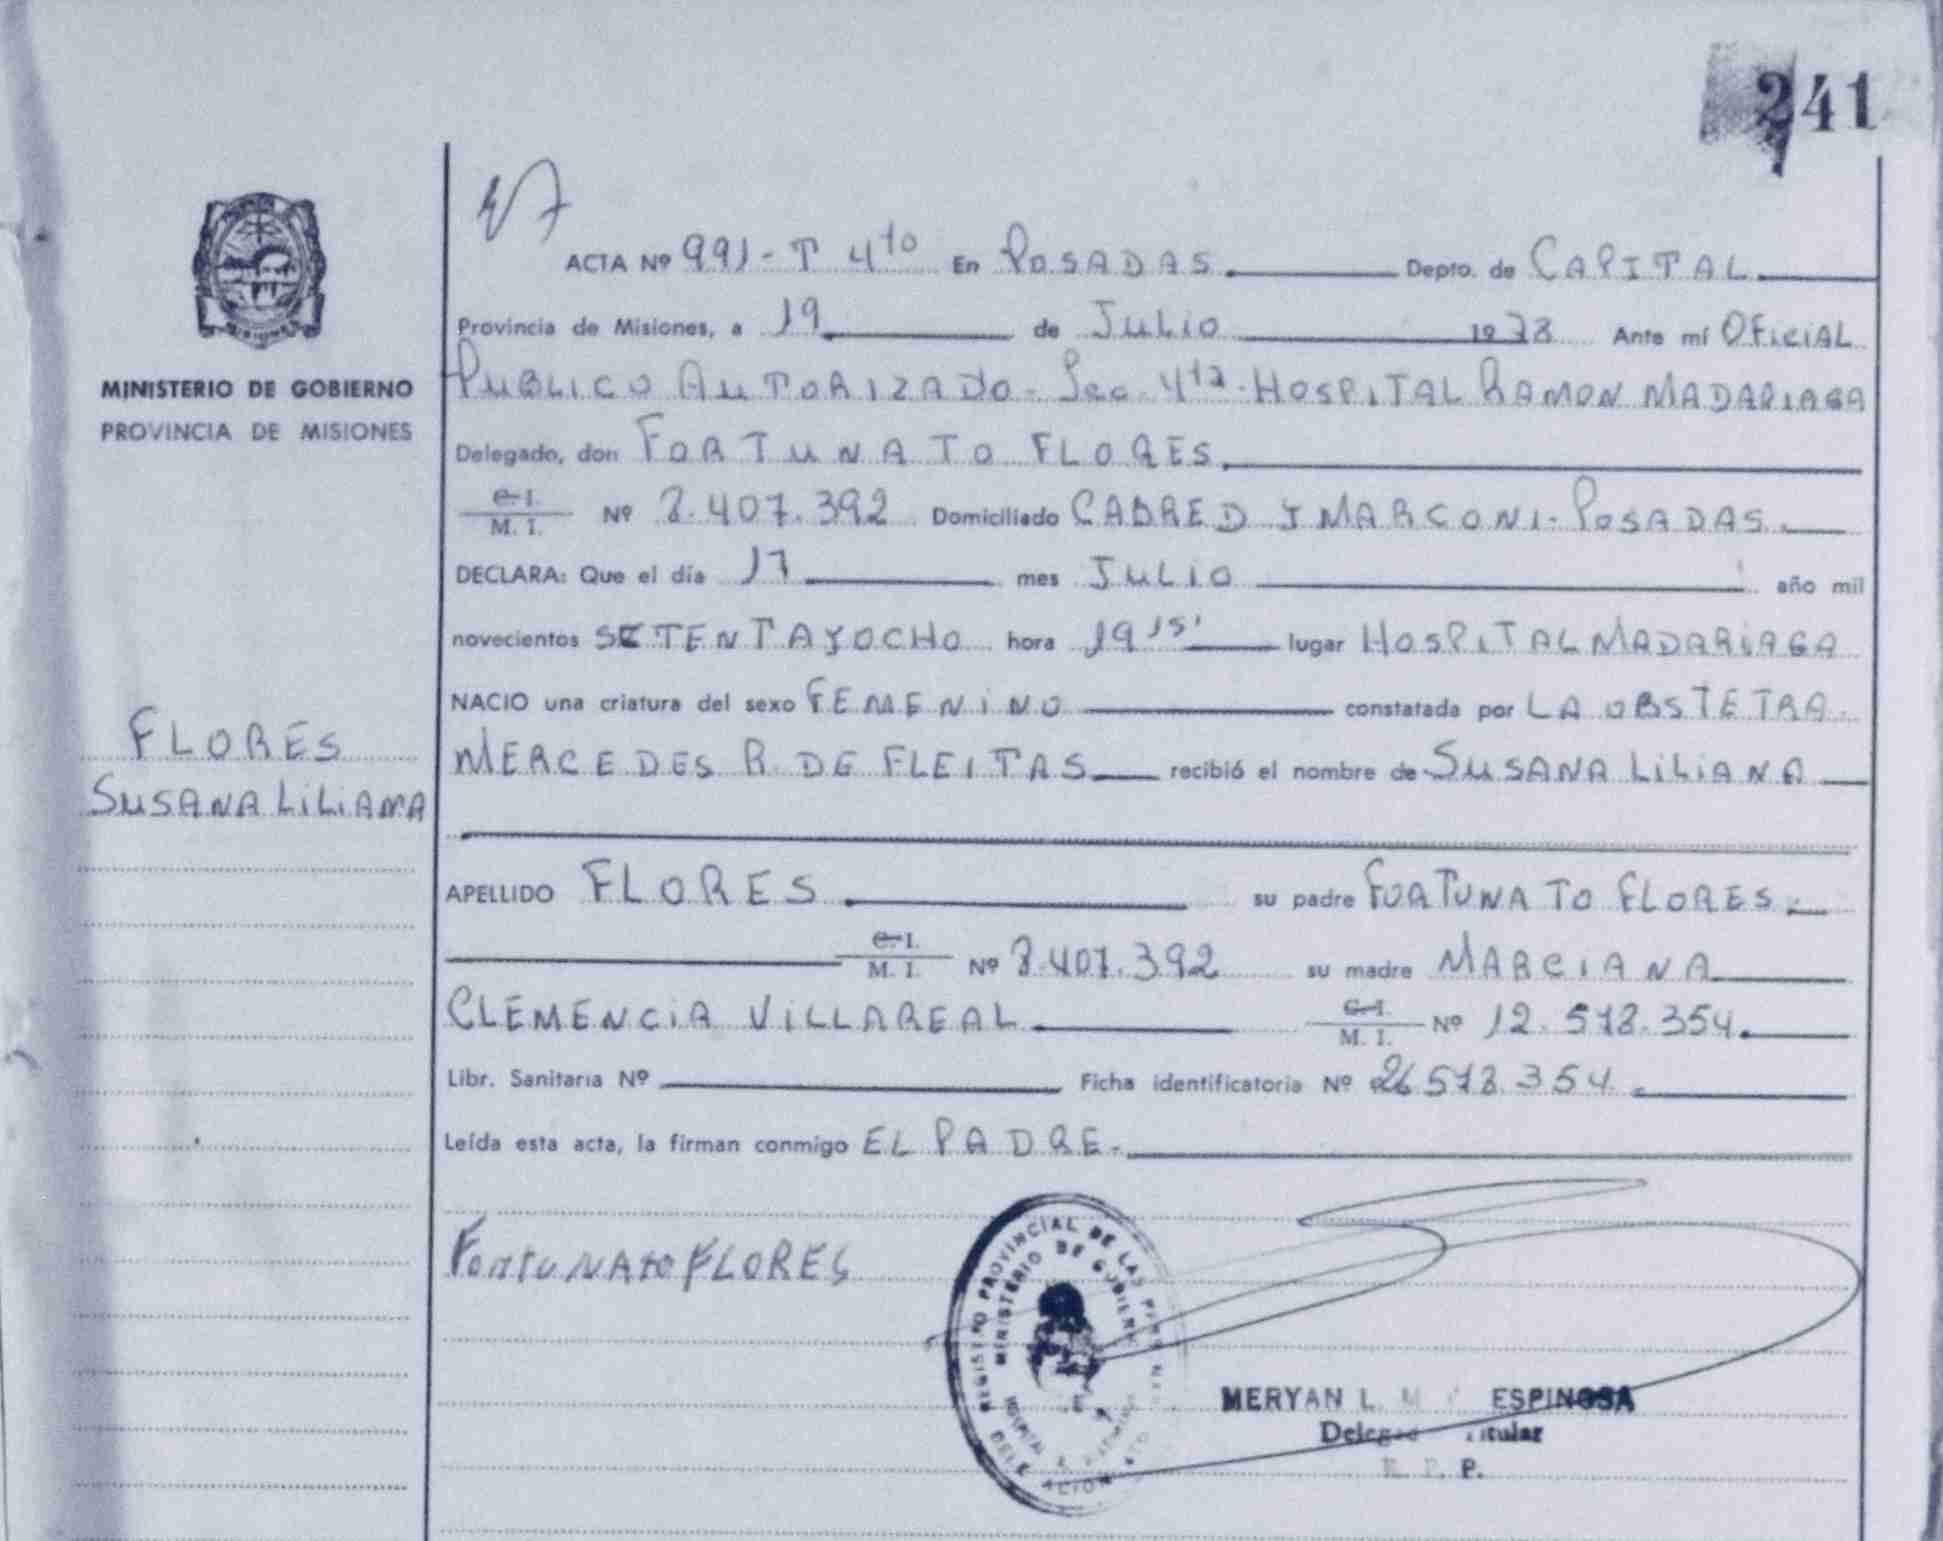 241
ACTA Nº 991-T 4to En POSADAS. Depto. de CAPITAL
Provincia de Misiones, a 19 de JULIO 1978 Ante mí OFICIAL
PUBLICO AUTORIZADO- Sec. 4ta- HOSPITAL RAMON MADARIAGA
MINISTERIO DE GOBIERNO
PROVINCIA DE MISIONES
Delegado, don FORTUNATO FLORES.
C. I.
M. I. Nº 8.407.392 Domiciliado CABRED Y MARCONI- POSADAS.
DECLARA: Que el día 17 mes JULIO año mil
novecientos SETENTA Y OCHO hora 19 15' lugar HOSPITAL MADARIAGA
NACIO una criatura del sexo FEMENINO constatada por LA OBSTETRA
MERCEDES R. DE FLEITAS recibió el nombre de SUSANA LILIANA
FLORES
SUSANA LILIANA
APELLIDO FLORES su padre FORTUNATO FLORES.
C. I.
M. I. Nº 8.407.392 su madre MARCIANA
CLEMENCIA VILLAREAL C. I.
M. I. Nº 12.578.354.
Libr. Sanitaria Nº Ficha identificatoria Nº 26578.354.
Leída esta acta, la firman conmigo EL PADRE.
FORTUNATO FLORES
REGISTRO PROVINCIAL DE LAS
MINISTERIO DE GOBIERNO
HOSPITAL
MERYAN L. ESPINOSA
Delegado Titular
R. P. P.